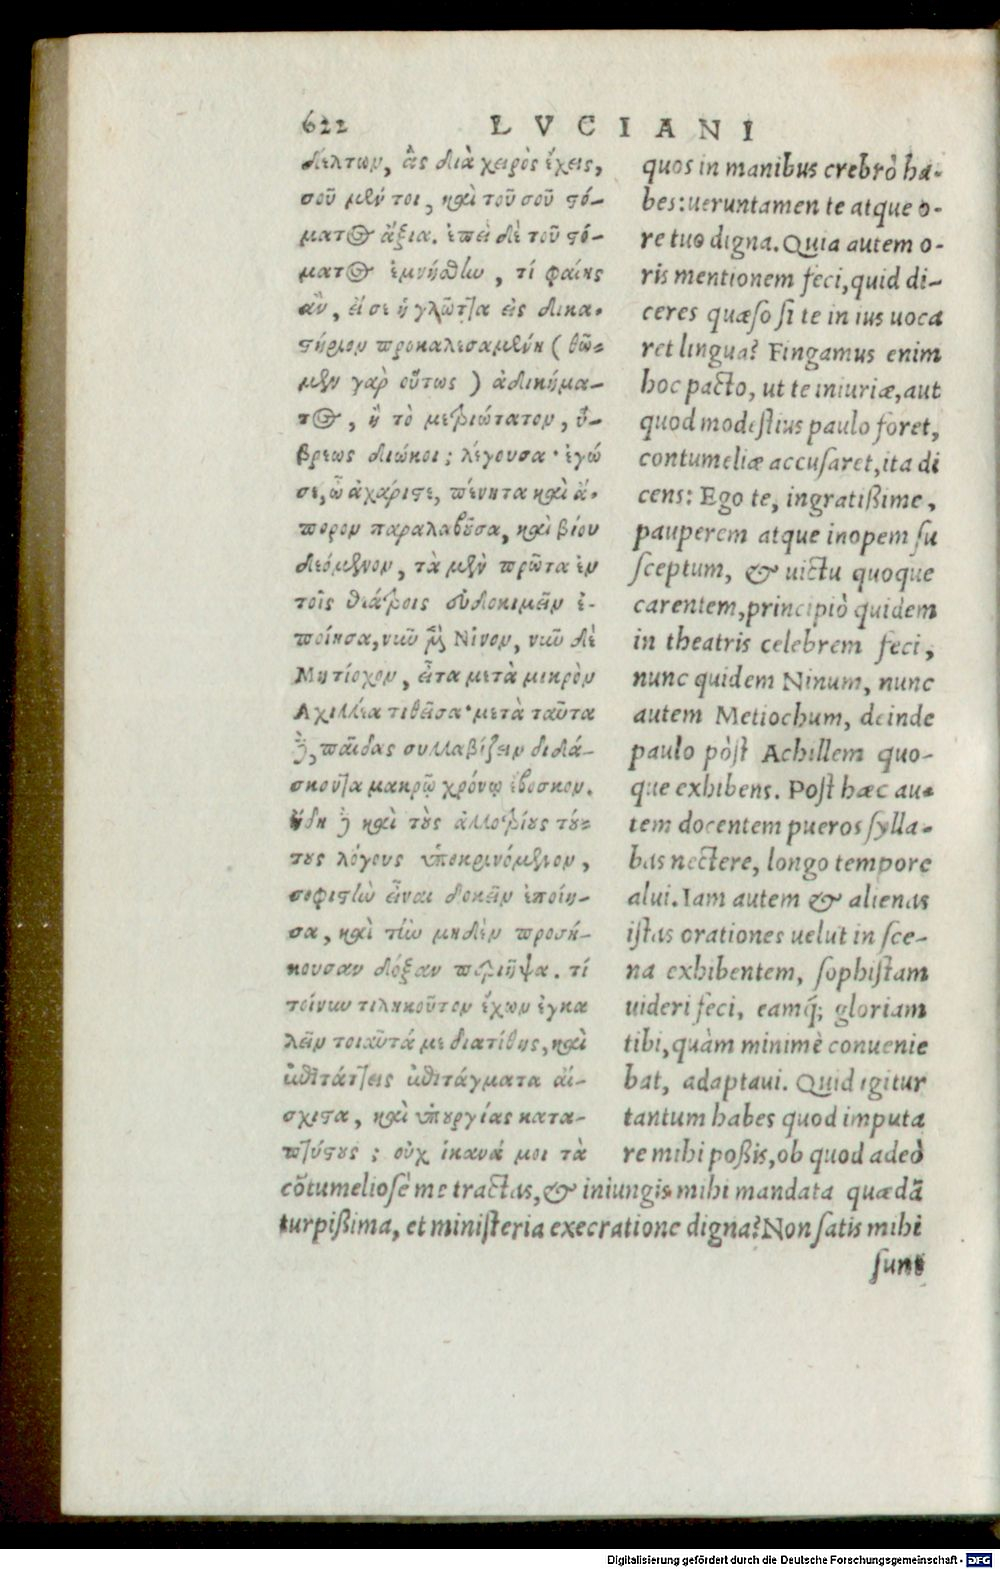 622 LVCIANI
δέλτων, ἃς διὰ χειρὸς ἔχεις,
σοῦ μέν τοι, καὶ τοῦ σοῦ στό-
ματος ἄξια. ἐπεὶ δὲ τοῦ στό-
ματος ἐμνήσθην, τί φαίης
ἂν, εἴ σε ἡ γλῶττα εἰς δικα-
στήριον προκαλεσαμένη (θῶ-
μεν γὰρ οὕτως) ἀδικήμα-
τος, ἢ τὸ μετριώτατον, ὕ-
βρεως διώκοι; λέγουσα· ἐγώ
σε, ὦ ἀχάριστε, πένητα καὶ ἄ-
πορον παραλαβοῦσα, καὶ βίου
δεόμενον, τὰ μὲν πρῶτα ἐν
τοῖς θεάτροις εὐδοκιμεῖν ἐ-
ποίησα, νῦν μὲν Νίνον, νῦν δὲ
Μητίοχον, εἶτα μετὰ μικρὸν
Αχιλλέα τιθεῖσα· μετὰ ταῦτα
δὲ, παῖδας συλλαβίζειν διδά-
σκοντα μακρῷ χρόνῳ ἔβοσκον.
ἤδη δὲ καὶ τοὺς ἀλλοτρίους τού-
τους λόγους ὑποκρινόμενον,
σοφιστὴν εἶναι δοκεῖν ἐποίη-
σα, καὶ τὴν μηδὲν προσή-
κουσαν δόξαν περιῆψα. τί
τοίνυν τιληκοῦτον ἔχων ἐγκα
λεῖν τοιαῦτά με διατίθης, καὶ
ἐπιτάττεις ἐπιτάγματα αἴ-
σχιστα, καὶ ὑπουργίας κατα-
πτύστους; οὐχ ἱκανά μοι τὰ
quos in manibus crebrò ha-
bes: ueruntamen te atque o-
re tuo digna. Quia autem o-
ris mentionem feci, quid di-
ceres quæso si te in ius uoca
ret lingua? Fingamus enim
hoc pacto, ut te iniuriæ, aut
quod modestius paulo foret,
contumeliæ accusaret, ita di
cens: Ego te, ingratißime,
pauperem atque inopem su
sceptum, & uictu quoque
carentem, principiò quidem
in theatris celebrem feci,
nunc quidem Ninum, nunc
autem Metiochum, deinde
paulo pòst Achillem quo-
que exhibens. Post hæc au-
tem docentem pueros sylla-
bas nectere, longo tempore
alui. Iam autem & alienas
istas orationes uelut in sce-
na exhibentem, sophistam
uideri feci, eamq́; gloriam
tibi, quàm minimè conuenie
bat, adaptaui. Quid igitur
tantum habes quod imputa
re mihi poßis, ob quod adeò
cõtumeliosè me tractas, & iniungis mihi mandata quædã
turpißima, et ministeria execratione digna? Non satis mihi
sunt
Digitalisierung gefördert durch die Deutsche Forschungsgemeinschaft - DFG